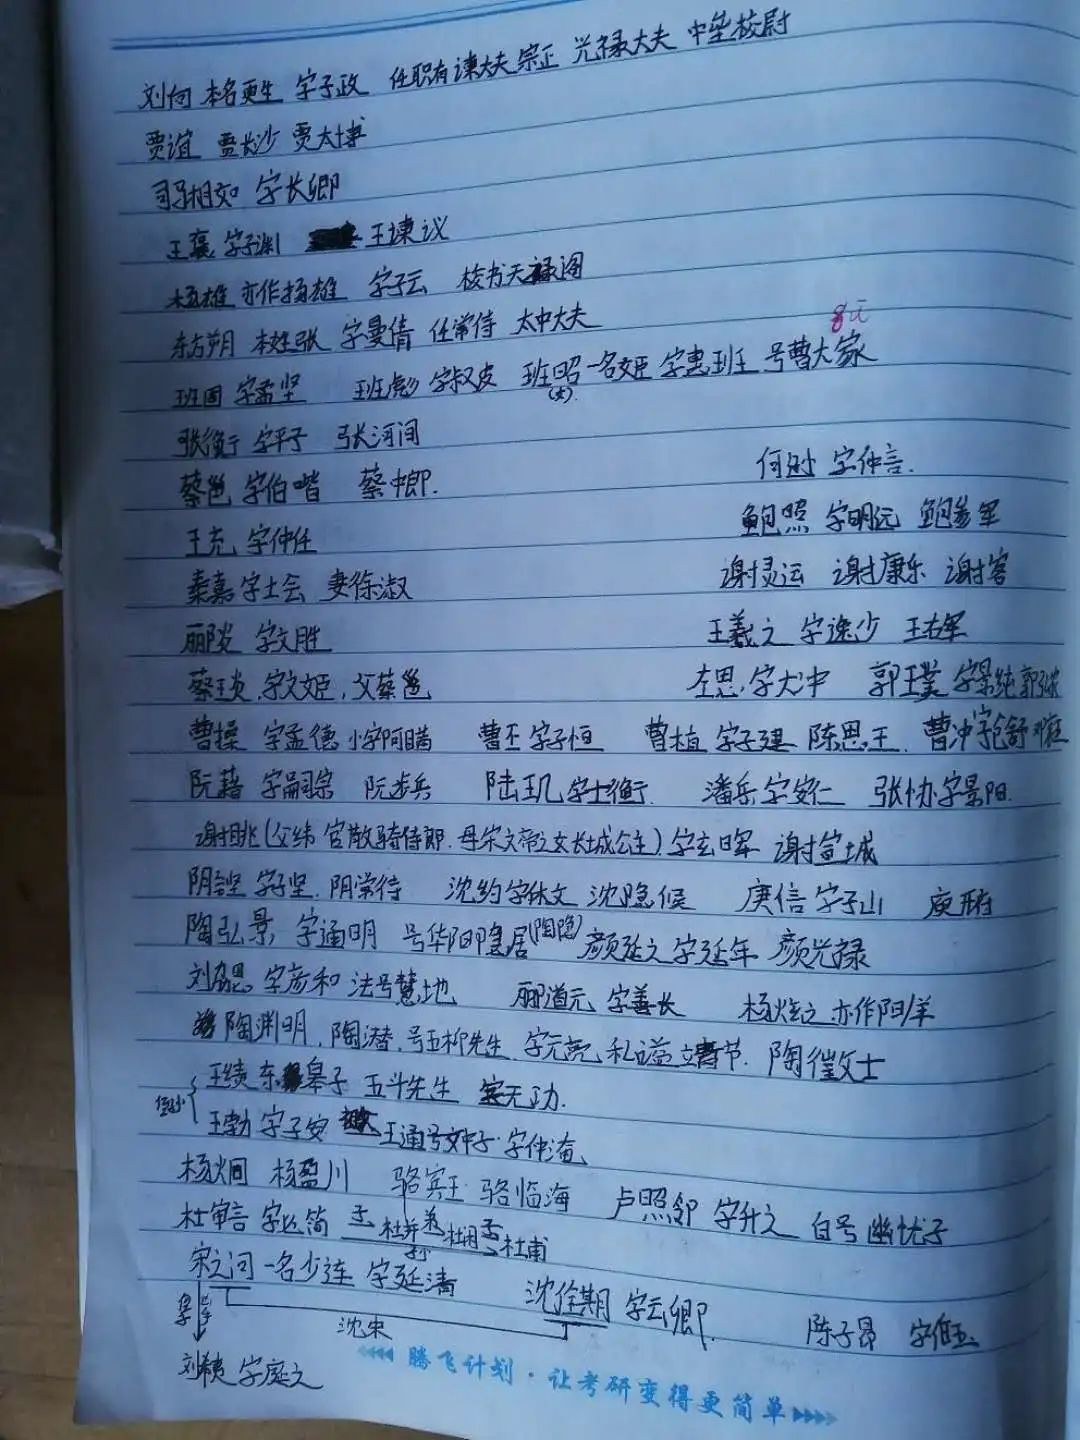 刘向 本名更生 字子政 任职有谏大夫 宗正 光禄大夫 中垒校尉
贾谊 贾长沙 贾太博
司马相如 字长卿
王襄 字子渊 王谏议
杨雄 亦作扬雄 字子云 校书天禄阁
东方朔 本姓张 字曼倩 任常侍 太中大夫
班固 字孟坚 班彪 字叔皮 班昭 一名姬 字惠班 号曹大家
(女)
张衡 字平子 张河间
蔡邕 字伯喈 蔡中郎.
何逊 字仲言.
王充 字仲任
鲍照 字明远 鲍参军
秦嘉 字士会 妻徐淑
谢灵运 谢康乐 谢客
郦炎 字文胜
王羲之 字逸少 王右军
蔡琰.字文姬.父蔡邕
左思.字太冲 郭璞 字景纯
曹操 字孟德 小字阿瞒 曹丕 字子恒 曹植 字子建 陈思王. 曹冲字仓舒
阮藉 字嗣宗 阮步兵 陆玑 字士衡 潘乐 字安仁 张协.字景阳.
谢眺(父纬 官散骑侍郎.母宋文帝之女长城公主)字玄晖 谢宣城
阴铿 字子坚.阴常侍 沈约 字休文 沈隐候 庾信 字子山 庾开府
陶弘景, 字通明 号华阳隐居(陶隐) 颜延之 字延年 颜光禄
刘勰 字彦和 法号慧地 郦道元 字善长 杨炫之 亦作阳/羊
陶渊明, 陶潜.号五柳先生.字元亮.私谥靖节.陶征士
王绩 东皋子 五斗先生 字无功.
王勃 字子安 王通号文中子·字仲淹
杨炯 杨盈川 骆宾王 骆临海 卢照邻 字升之 自号幽忧子
杜审言 字必简 杜并 杜闲 杜甫
宋之问 一名少连 字延清 沈佺期 字云卿. 陈子昂 字伯玉
沈宋
刘希夷 字庭之
腾飞计划·让考研变得更简单